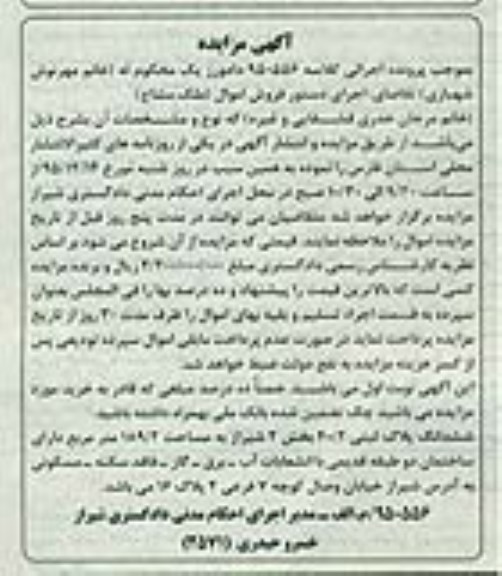 آگهی مزایده
بموجب پرونده اجرائی کلاسه ۹۵۰۵۵۶ دادورز یک محکوم له (خانم مهرنوش
شهبازی) تقاضای اجرای دستور فروش اموال (ملک مشاع)
(خانم مرجان حیدری و غیره) که نوع و مشخصات آن بشرح ذیل
می‌باشد. از طریق مزایده و انتشار آگهی در یکی از روزنامه های کثیرالانتشار
محلی استان فارس را نموده به همین سبب در روز شنبه مورخ ۹۵/۱۲/۱۴ از
ساعت ۹/۳۰ الی ۱۰/۳۰ صبح در محل اجرای احکام مدنی دادگستری شیراز
مزایده برگزار خواهد شد متقاضیان می توانند در مدت پنج روز قبل از تاریخ
مزایده اموال را ملاحظه نمایند. قیمتی که مزایده از آن شروع می شود بر اساس
نظریه کارشناس رسمی دادگستری مبلغ ریال و برنده مزایده
کسی است که بالاترین قیمت را پیشنهاد و ده درصد بها را فی المجلس بعنوان
سپرده به قسمت اجراء تسلیم و بقیه بهای اموال را ظرف مدت ۳۰ روز از تاریخ
مزایده پرداخت نماید در صورت عدم پرداخت مابقی اموال سپرده تودیعی پس
از کسر هزینه مزایده به نفع دولت ضبط خواهد شد.
این آگهی نوبت اول می باشد. ضمناً ده درصد مبلغی که قادر به خرید مورد
مزایده می باشید چک تضمین شده بانک ملی بهمراه داشته باشید.
ششدانگ پلاک ثبتی بخش ۳ شیراز به مساحت ۱۸۹/۲ متر مربع دارای
ساختمان دو طبقه قدیمی با انشعابات آب ـ برق ـ گاز ـ فاقد سکنه ـ مسکونی
به آدرس شیراز خیابان وصال کوچه ۷ فرعی ۲ پلاک ۱۶ می باشد.
۹۵۰۵۵۶/م‌الف ـ مدیر اجرای احکام مدنی دادگستری شیراز
خسرو حیدری (۴۵۷۱)